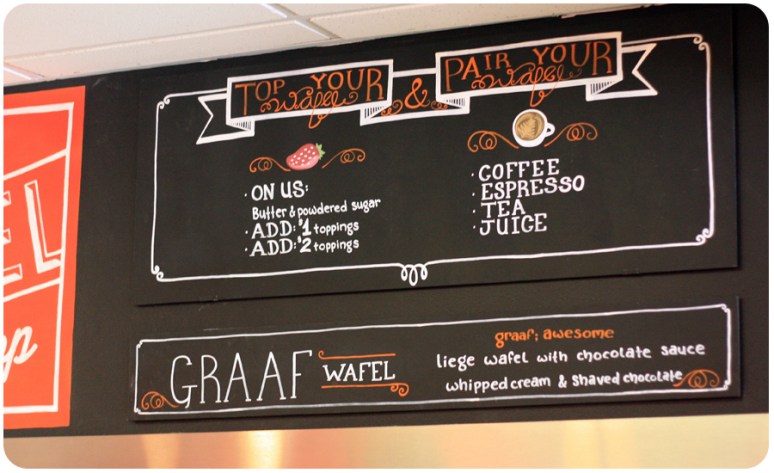 TOP YOUR
wafel
&
PAIR YOUR
wafel
· ON US:
Butter & powdered sugar
· ADD: $1 toppings
· ADD: $2 toppings
· COFFEE
· ESPRESSO
· TEA
· JUICE
GRAAF WAFEL
graaf; awesome
liege wafel with chocolate sauce
whipped cream & shaved chocolate
EL
op